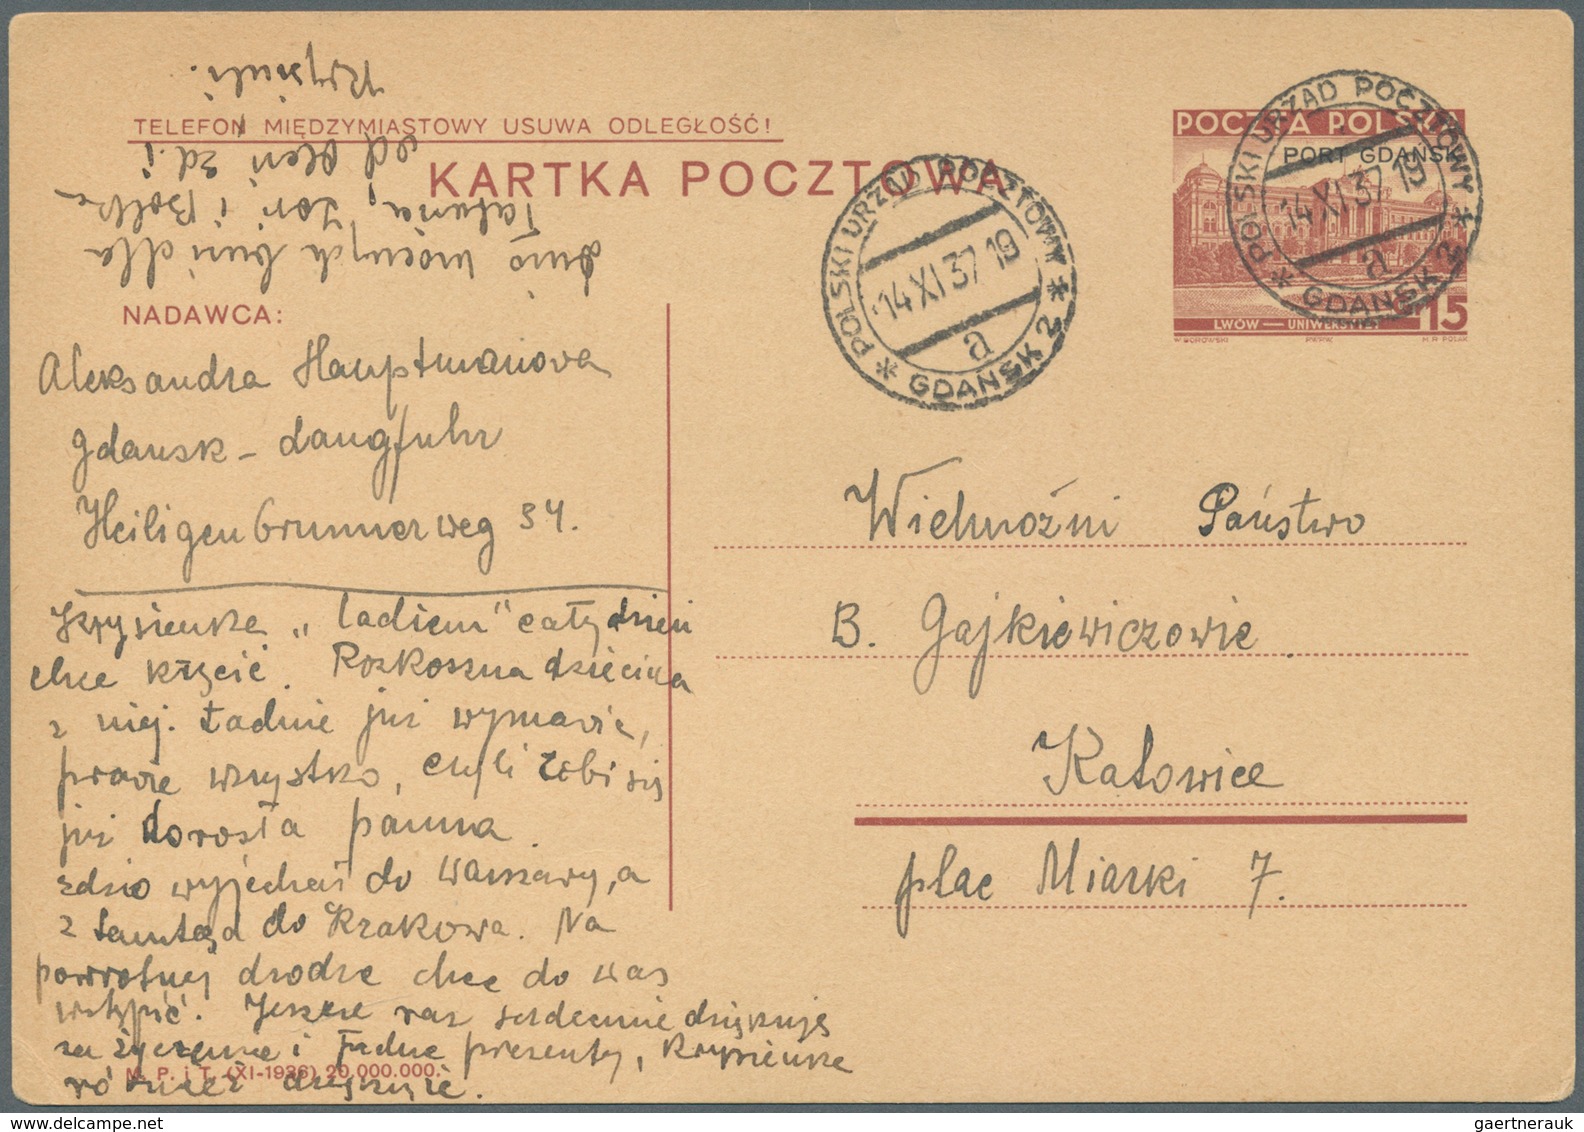 TELEFON MIĘDZYMIASTOWY USUWA ODLEGŁOŚĆ!
KARTKA POCZTOWA
POCZTA POLSKA
PORT GDAŃSK
LWÓW — UNIWERSYTET
15
W. BOROWSKI
M. R. POLAK
* POLSKI URZĄD POCZTOWY *
14 XI 37 19
a
GDAŃSK 2
* POLSKI URZĄD POCZTOWY *
14 XI 37 19
a
GDAŃSK 2
NADAWCA:
Aleksandra Hauptmanova
Gdańsk - Langfuhr
Heiligenbrunnerweg 34.
Krysieńka „ladiem" cały dzień
chce kręcić. Rozkoszna dziecina
z niej. Ładnie już wymawia,
prawie wszystko, czyli robi się
już dorosła panna
Zdzio wyjechał do Warszawy, a
z tamtąd do Krakowa. Na
powrotnej drodze chce do was
wstąpić. Jeszcze raz serdecznie dziękuję
za życzenia i ładne prezenty, Krysieńka
również dziękuje.
M. P. i T. (XI-1936) 20.000.000.
dużo mocnych buzi dla
Tatunia, Zosi i Bolka
od Oleń Zdz. i
Krysiuli.
Wielmożni Państwo
B. Gajkiewiczowie
Katowice
plac Miarki 7.
gaertnerauk